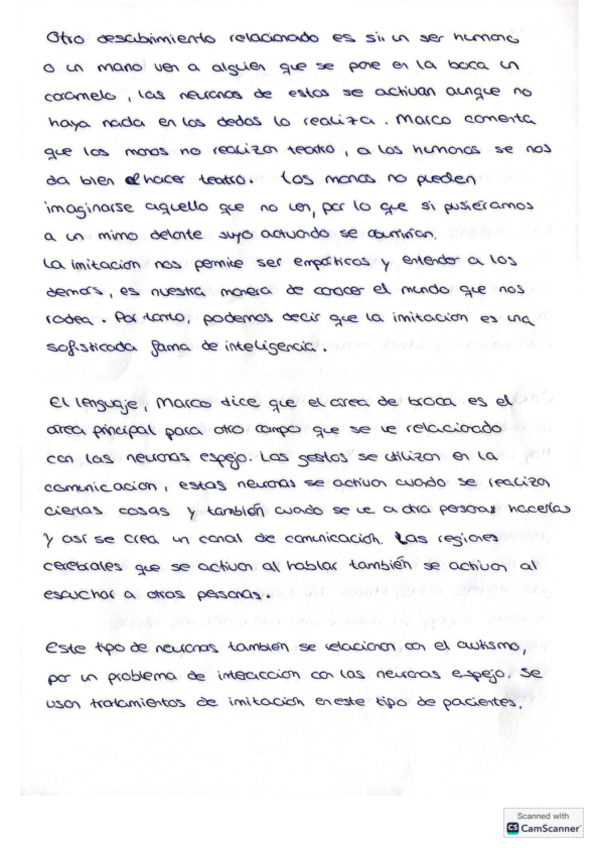 Otro descubrimiento relacionado es si un ser humano
o un mono ven a alguien que se pone en la boca un
caramelo, las neuronas de estos se activan aunque no
haya nada en los dedos lo realiza. Marco comenta
que los monos no realizan teatro, a los humanos se nos
da bien el hacer teatro. Los monos no pueden
imaginarse aquello que no ven, por lo que si pusieramos
a un mimo delante suyo actuando se aburrirían.
La imitacion nos permite ser empáticos y entender a los
demás, es nuestra manera de conocer el mundo que nos
rodea. Por tanto, podemos decir que la imitación es una
sofisticada forma de inteligencia.
El lenguaje, Marco dice que el area de broca es el
area principal para otro campo que se ve relacionado
con las neuronas espejo. Los gestos se utilizan en la
comunicacion, estas neuronas se activan cuando se realizan
ciertas cosas y también cuando se ve a otra persona hacerlas
y así se crea un canal de comunicación. Las regiones
cerebrales que se activan al hablar también se activan al
escuchar a otras personas.
Este tipo de neuronas tambien se relacionan con el autismo,
por un problema de interaccion con las neuronas espejo. Se
usan tratamientos de imitación en este tipo de pacientes.
Scanned with
CS CamScanner